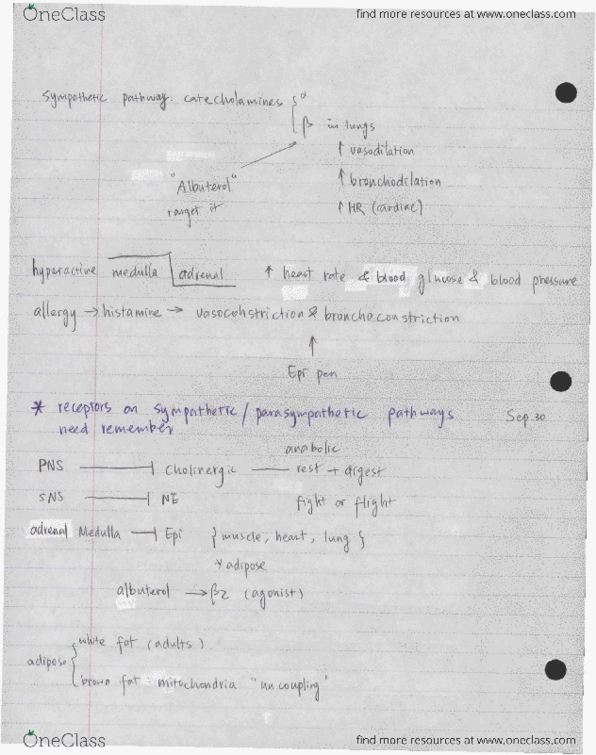 OneClass find more resources at www.oneclass.com
Sympathetic pathway: catecholamines { α
β in lungs
↑ vasodilation
"Albuterol" ↑ bronchodilation
target it ↑ HR (cardiac)
hyperactive medulla adrenal ↑ heart rate & blood glucose & blood pressure
allergy → histamine → vasoconstriction & bronchoconstriction
↑
Epi pen
* receptors on sympathetic / parasympathetic pathways Sep. 30
need remember
anabolic
PNS ⊣ cholinergic — rest + digest
SNS ⊣ NE fight or flight
adrenal Medulla ⊣ Epi { muscle, heart, lung }
adipose
albuterol → β2 (agonist)
white fat (adults)
adipose {
brown fat mitochondria "uncoupling"
OneClass find more resources at www.oneclass.com